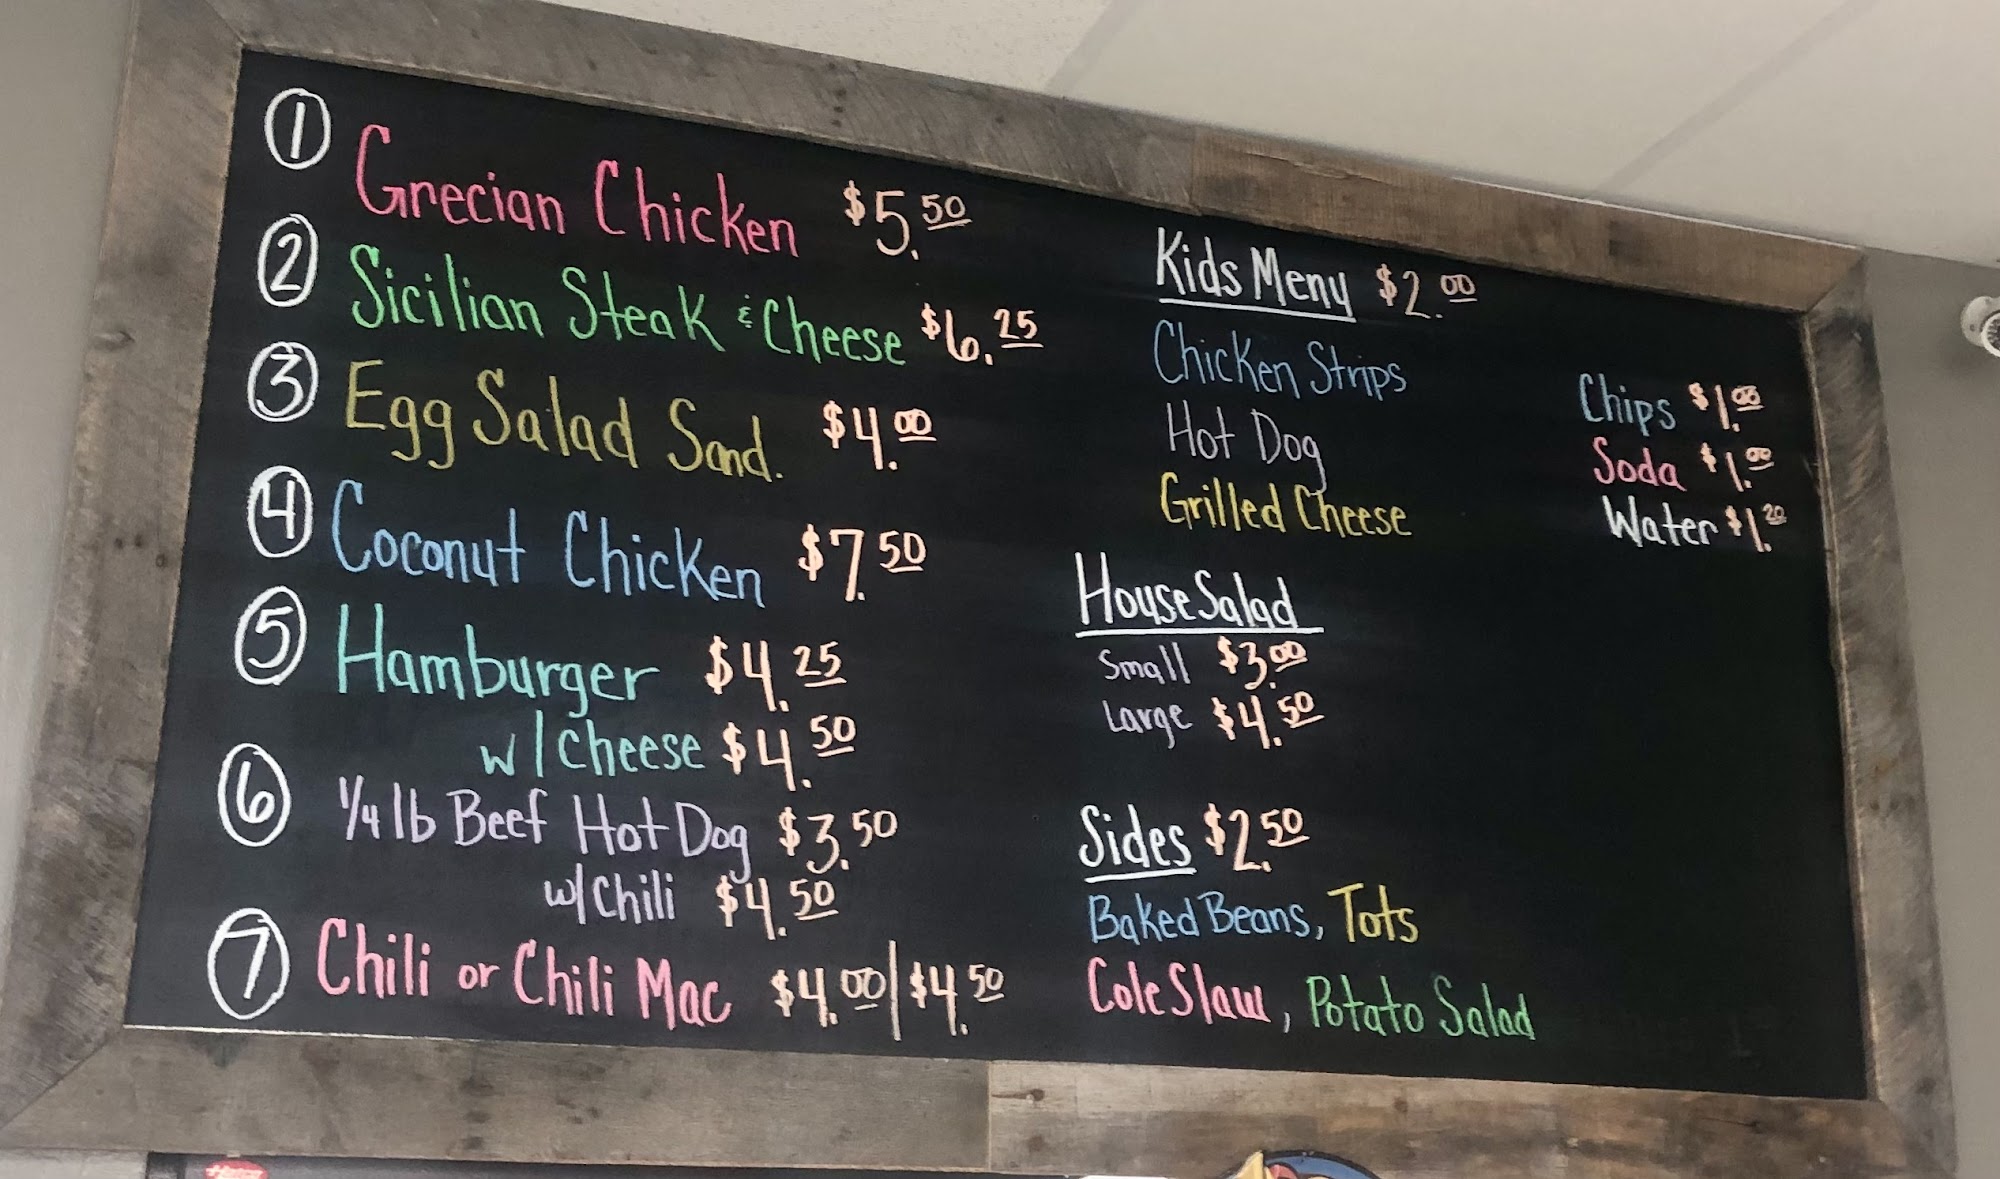 1 Grecian Chicken $5.50
2 Sicilian Steak & Cheese $6.25
3 Egg Salad Sand. $4.00
4 Coconut Chicken $7.50
5 Hamburger $4.25
w/cheese $4.50
6 1/4 lb Beef Hot Dog $3.50
w/chili $4.50
7 Chili or Chili Mac $4.00/$4.50
Kids Meny $2.00
Chicken Strips
Hot Dog
Grilled Cheese
House Salad
Small $3.00
Large $4.50
Sides $2.50
Baked Beans, Tots
Cole Slaw, Potato Salad
Chips $1.00
Soda $1.00
Water $1.20